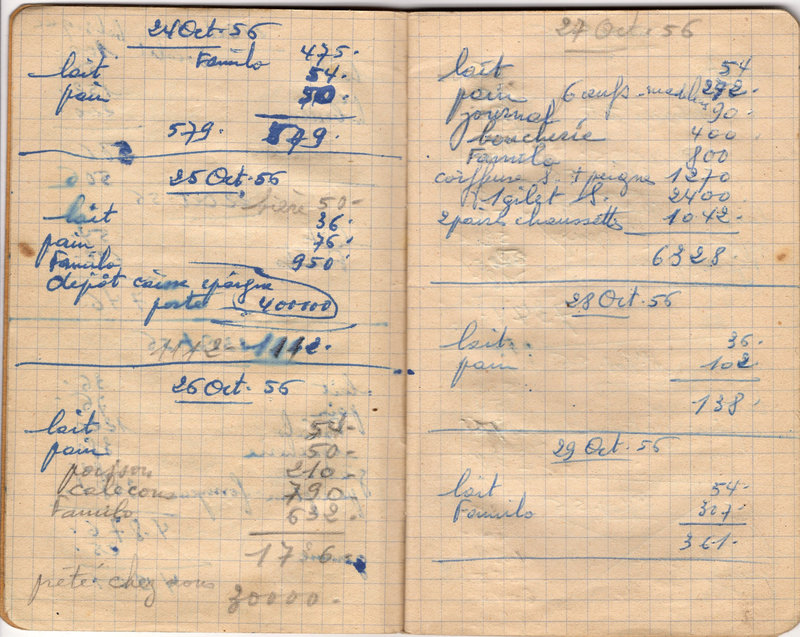 24 Oct. 56
Familo 475.
lait 54.
pain 50
579. 579.
25 Oct. 56
50-
lait 36.
pain 76.
Familo 950.
depôt caisse epargne
poste 400000
1112.
26 Oct. 56
lait 54-
pain 50-
poisson 210
calecons 790
Familo 632
17 6
prété chez nous
30000.-
27 Oct. 56
lait 54
pain 6 œufs 292.
journal 90
boucherie 400
Familo 800
coiffeuse S. + peigne 1270
1 gilet S. 2400.
2 paires chaussettes 1042.
6328.
28 Oct. 56
lait 36.
pain 102
138.
29 Oct. 56
lait 54.
Familo 307
361.